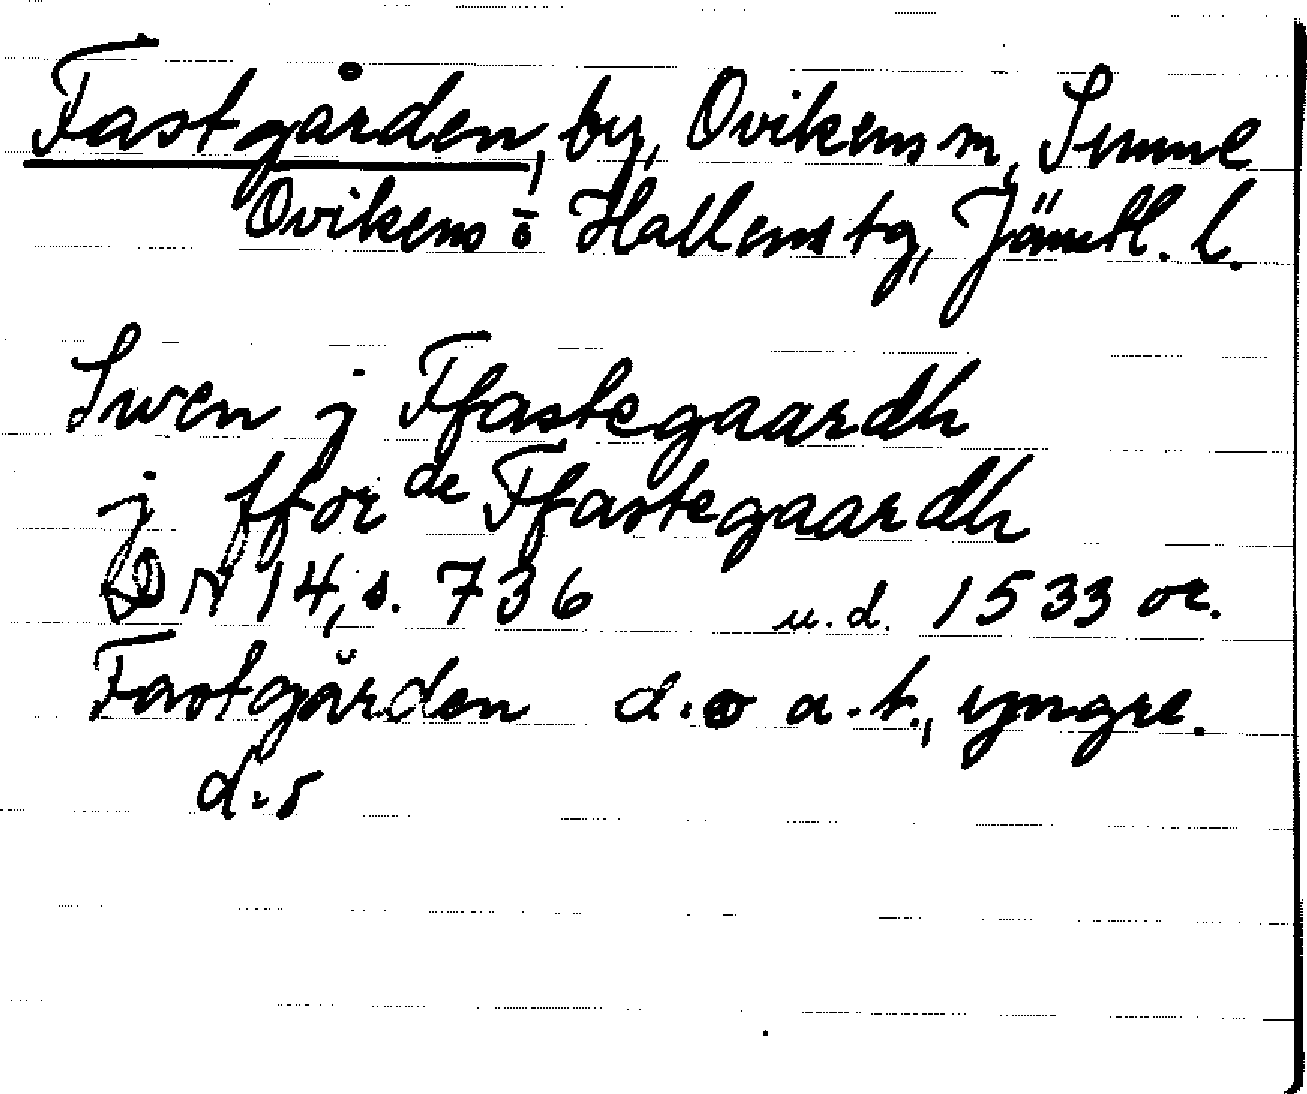 Fastgården, by, Ovikens sn, Sunne
Ovikens o Hallens tg, Jämtl. l.
Swen j Ffastegaardh
j ffor de Ffastegaardh
DN 14, s. 736 u.d. 1533 or.
Fastgården d.o a.t., yngre.